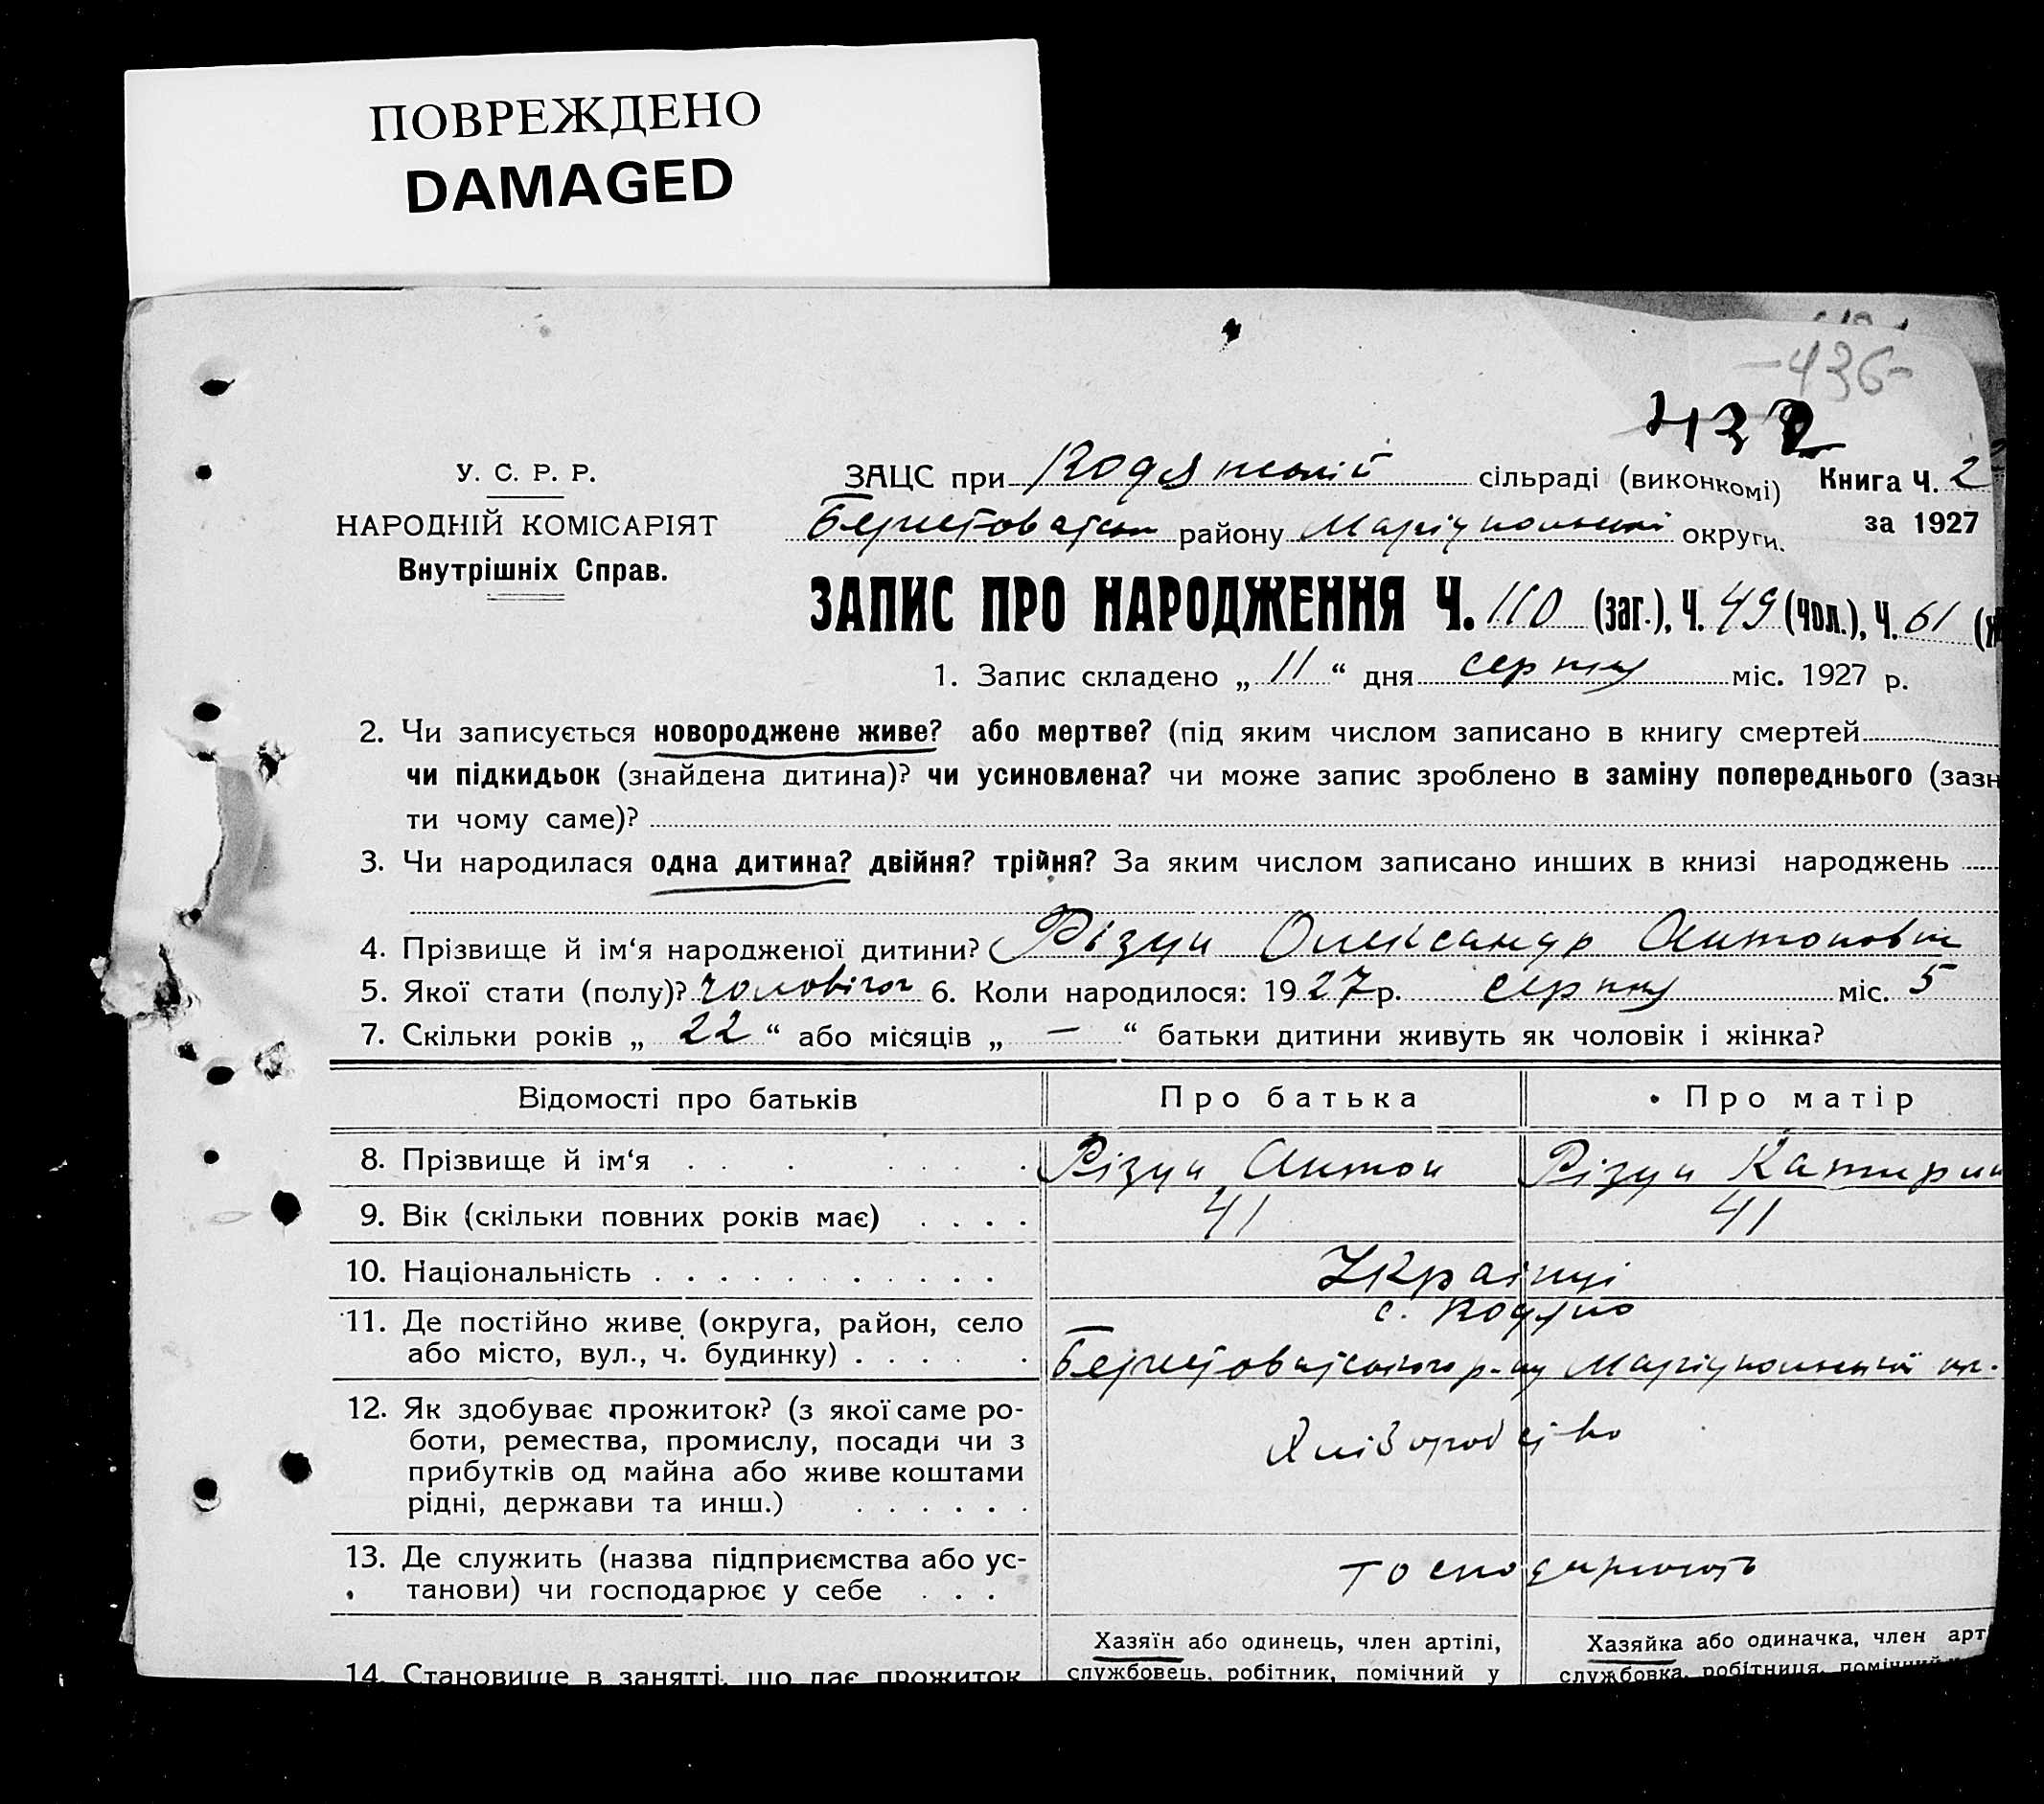 ПОВРЕЖДЕНО
DAMAGED
-436-
432
У. С. Р. Р.
НАРОДНІЙ КОМІСАРІЯТ
Внутрішніх Справ.
ЗАЦС при сільраді (виконкомі) Книга Ч. 2
району Маріупольської округи. за 1927
ЗАПИС ПРО НАРОДЖЕННЯ Ч. 110 (заг.), Ч. 49 (чол.), Ч. 61
1. Запис складено „ 11 “ дня серпня міс. 1927 р.
2. Чи записується новороджене живе? або мертве? (під яким числом записано в книгу смертей
чи підкидьок (знайдена дитина)? чи усиновлена? чи може запис зроблено в заміну попереднього (зазн
ти чому саме)?
3. Чи народилася одна дитина? двійня? трійня? За яким числом записано инших в книзі народжень
4. Прізвище й ім‘я народженої дитини? Різун Олександр Антонович
5. Якої стати (полу)? чоловічої 6. Коли народилося: 1927 р. серпня міс. 5
7. Скільки років „ 22 “ або місяців „ — “ батьки дитини живуть як чоловік і жінка?
Відомості про батьків Про батька Про матір
8. Прізвище й ім‘я Різун Антон Різун Катерин
9. Вік (скільки повних років має) 41 41
10. Національність Українці
11. Де постійно живе (округа, район, село с.
або місто, вул., ч. будинку) р-ну Маріупольської ок.
12. Як здобуває прожиток? (з якої саме ро-
боти, ремества, промислу, посади чи з Хліборобство
прибутків од майна або живе коштами
рідні, держави та инш.)
13. Де служить (назва підприємства або ус- господарюють
танови) чи господарює у себе
Хазяїн або одинець, член артілі, Хазяйка або одиначка, член арт
14. Становище в занятті, що дає прожиток службовець, робітник, помічний у службовка, робітниця, помічний